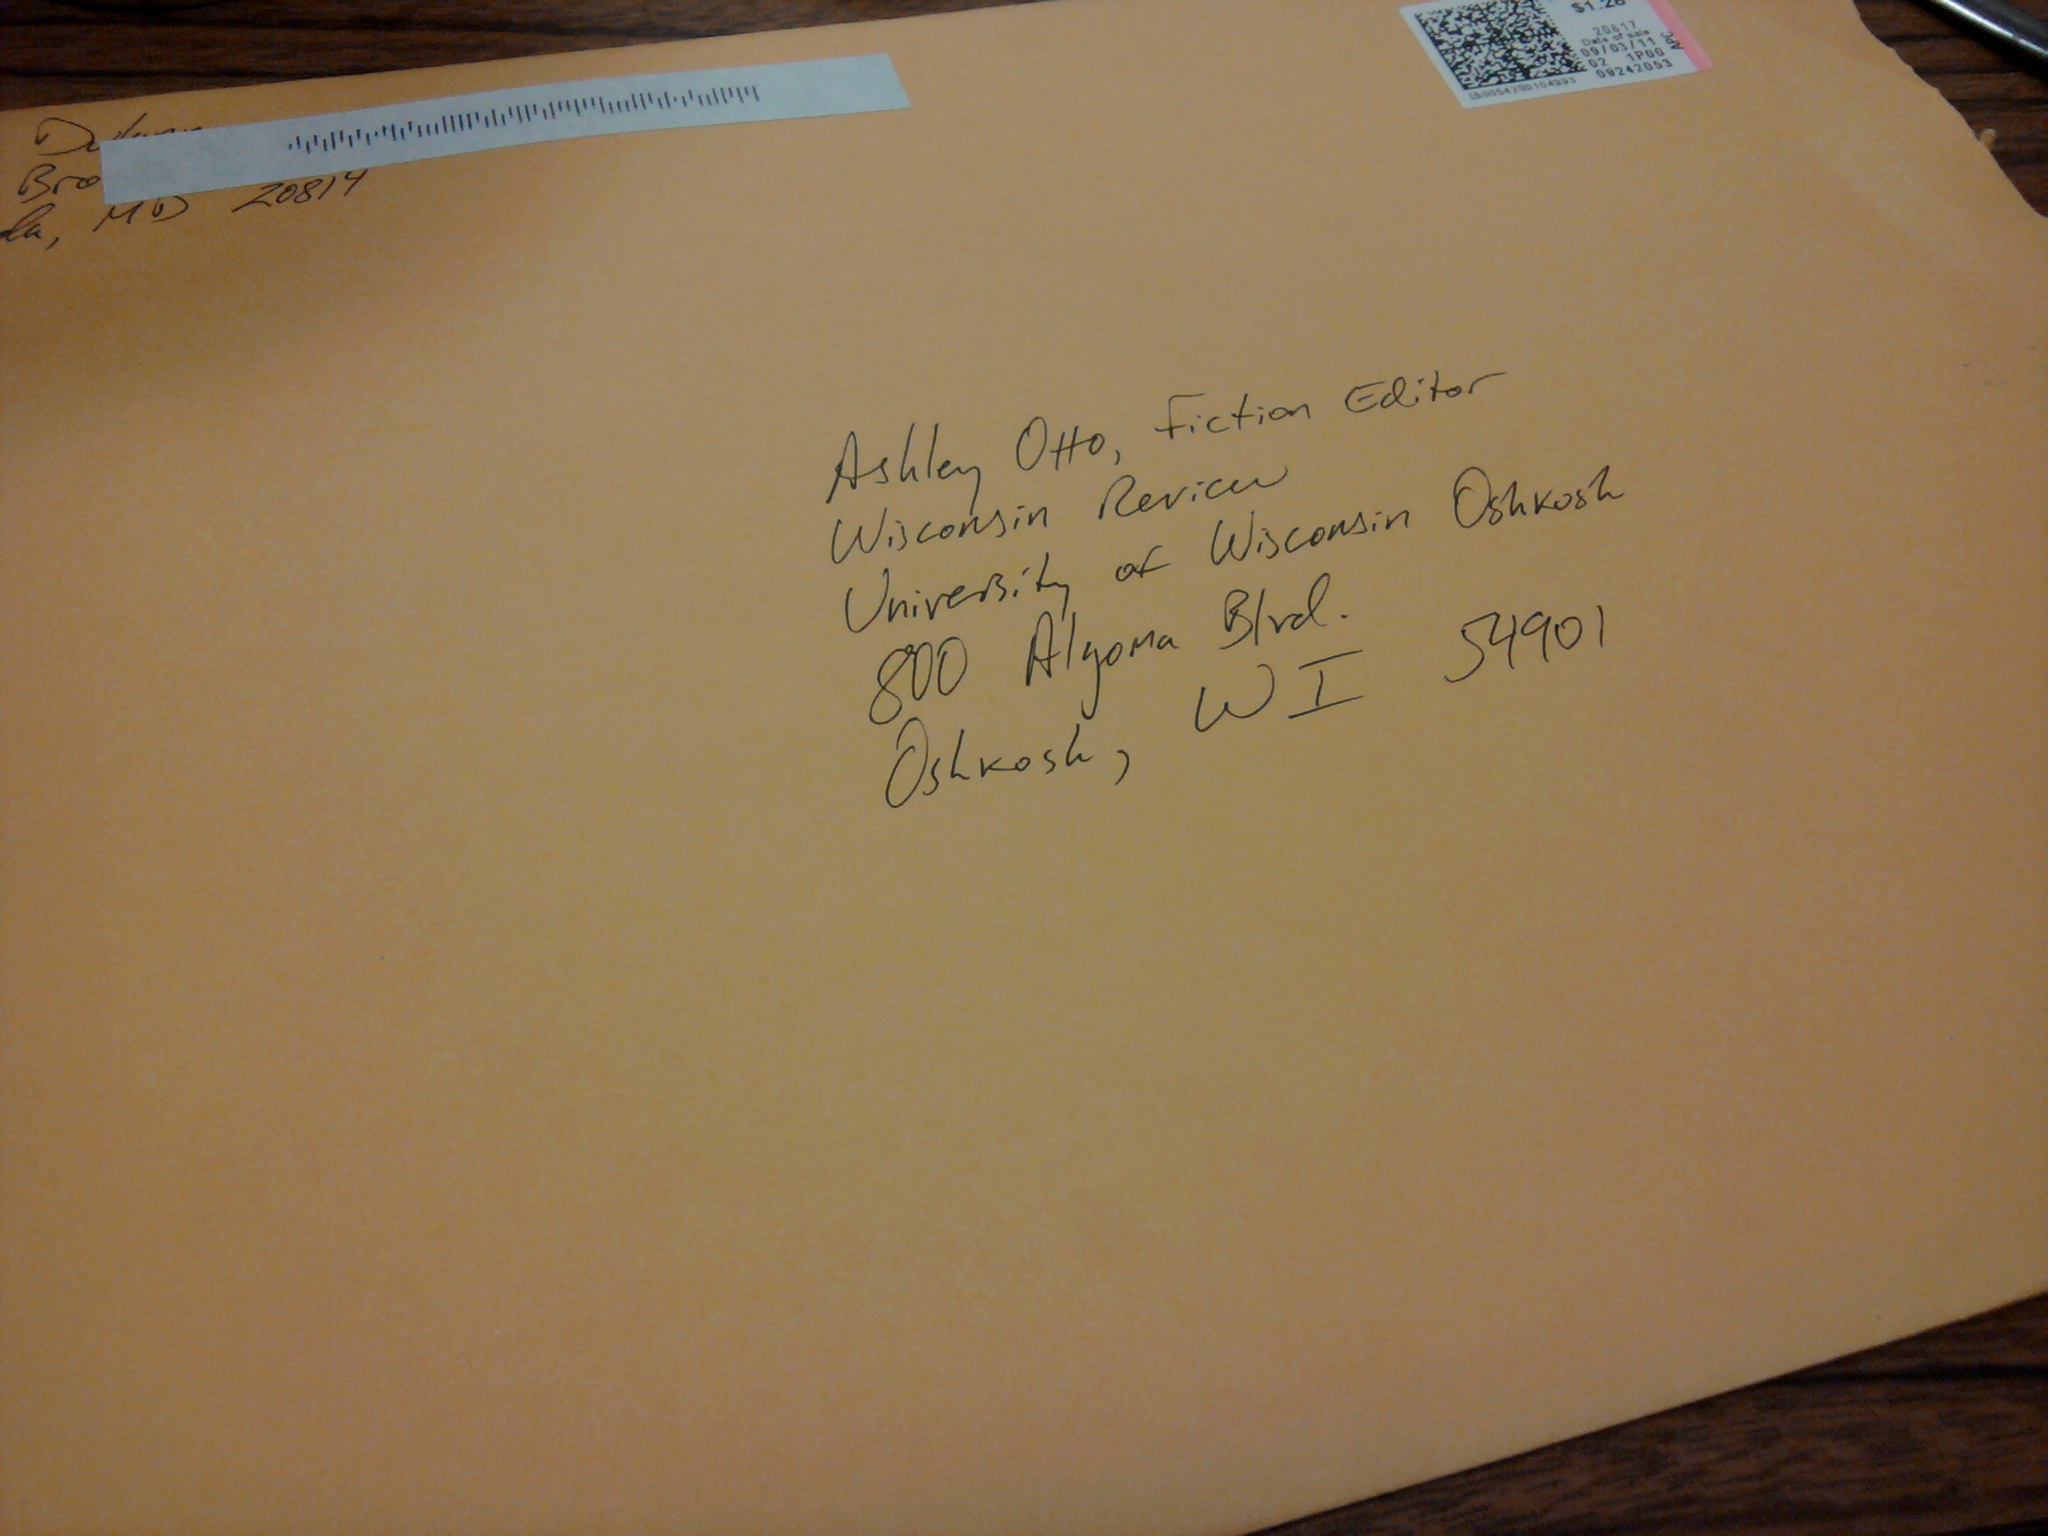 MD 20814
$1.28
20817
Date of sale
09/03/11
02 1P00
09242053
APC
Ashley Otto, Fiction Editor
Wisconsin Review
University of Wisconsin Oshkosh
800 Algoma Blvd.
Oshkosh, WI 54901